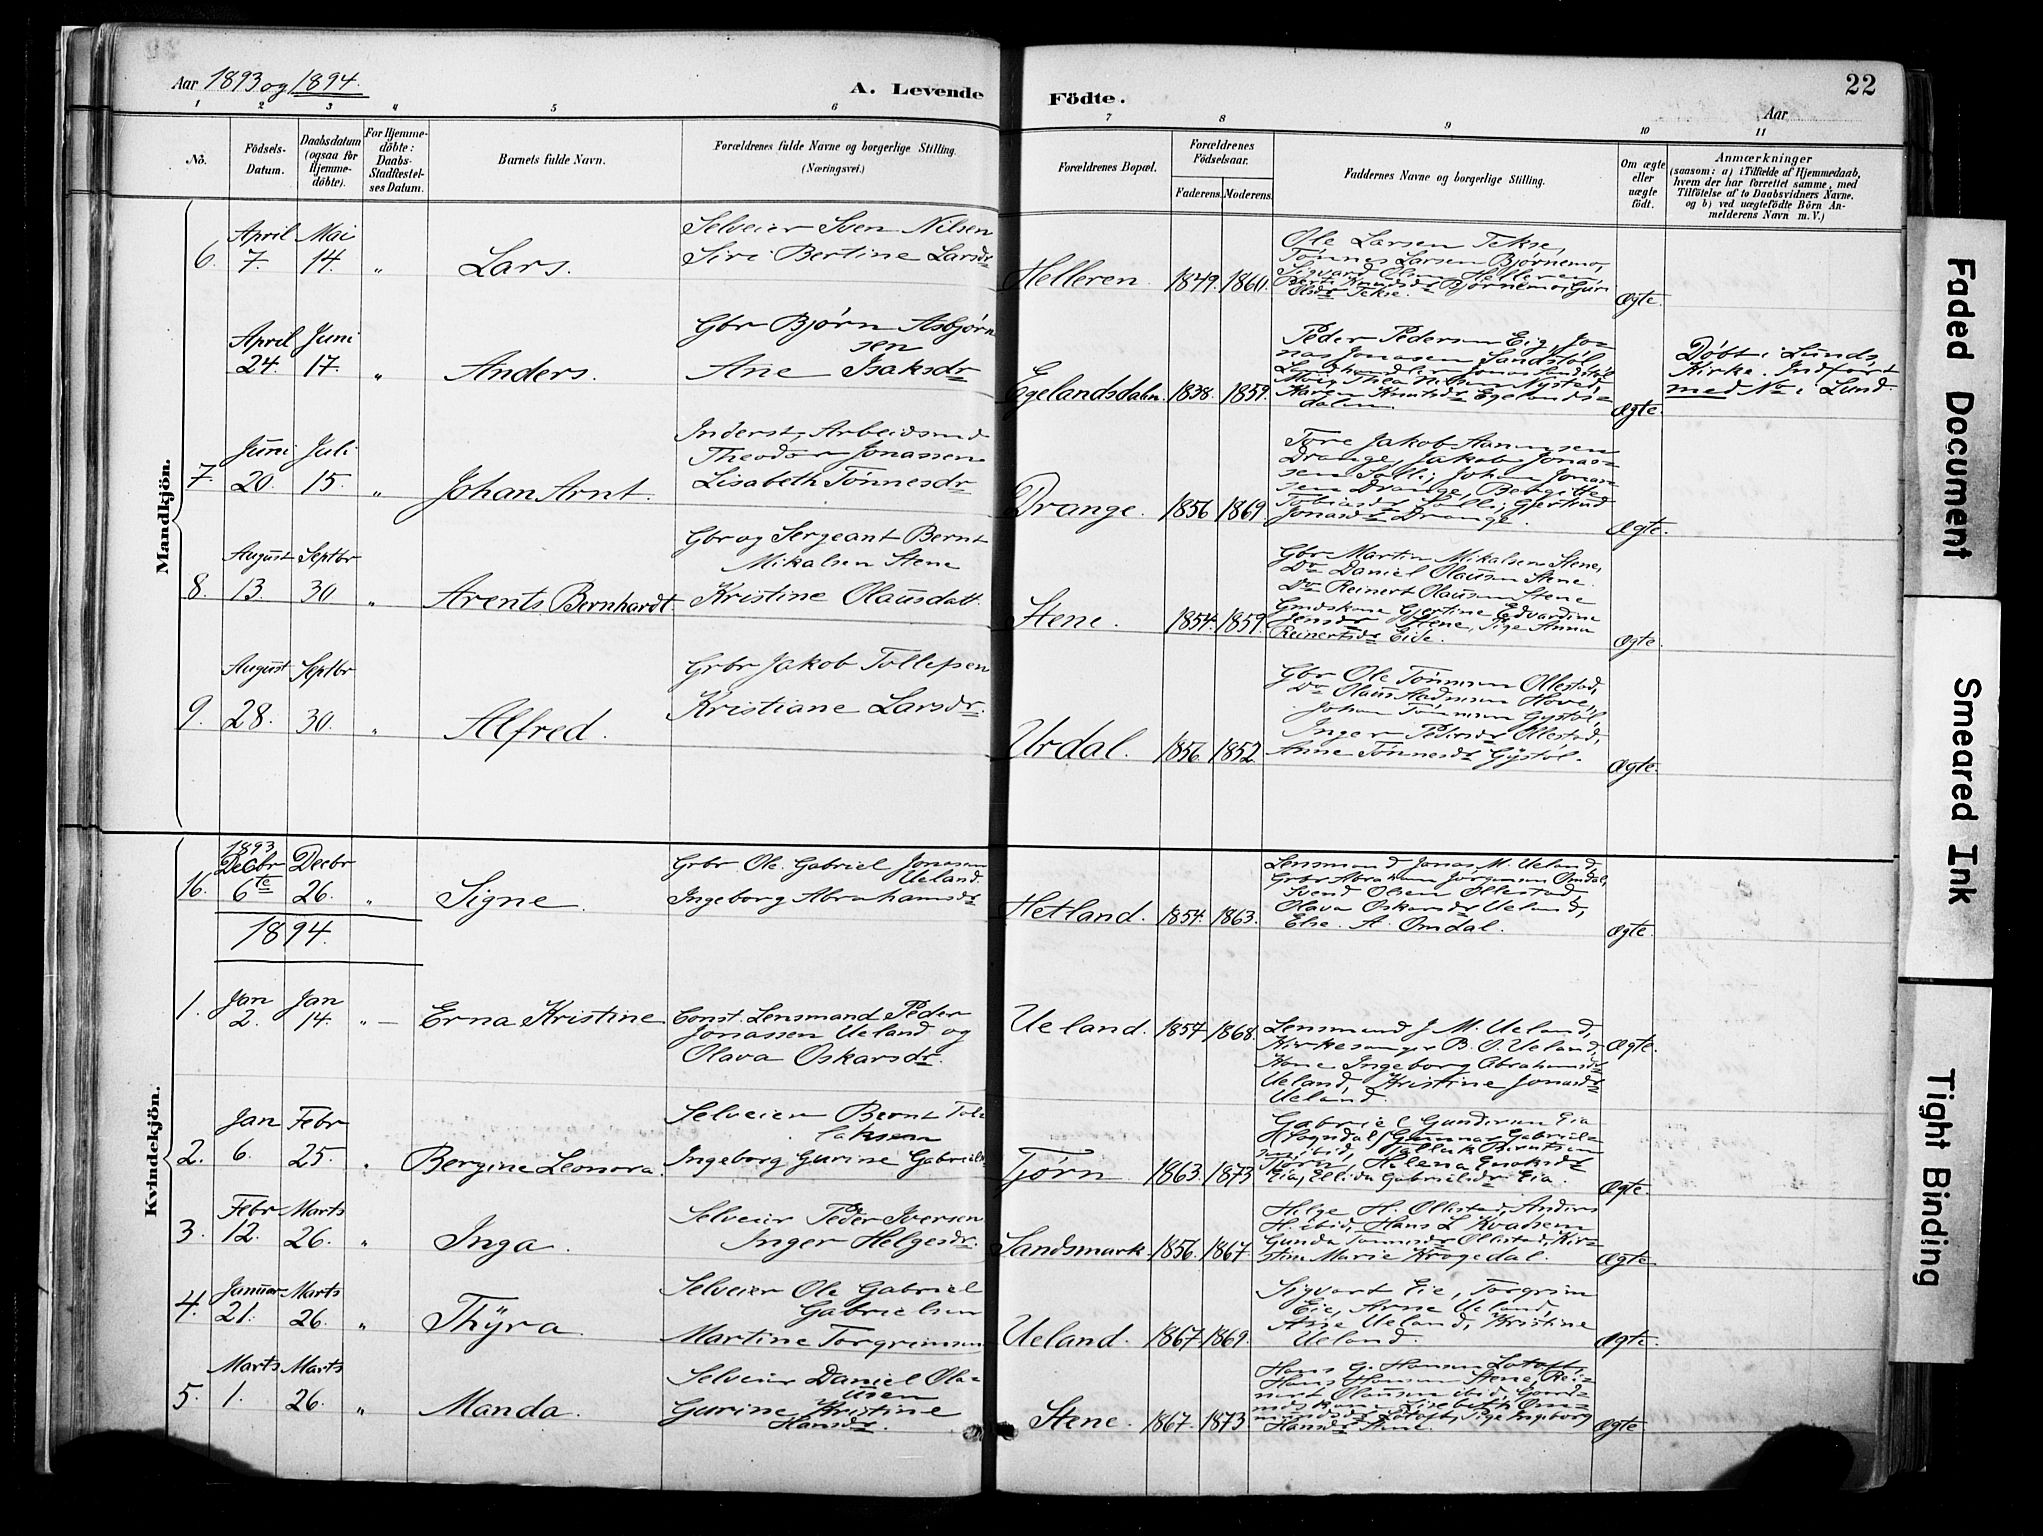 Aar 1893 og 1894.
A. Levende
Födte.
22
Aar
1 2 3 4 5 6 7 8 9 10 11
No.
Födsels-
Datum.
Daabsdatum
(ogsaa for
Hjemme-
döbte).
For Hjemme-
döbte:
Daabs-
Stadfestel-
ses Datum.
Barnets fulde Navn.
Forældrenes fulde Navne og borgerlige Stilling.
(Næringsvei.)
Forældrenes Bopæl.
Forældrenes
Födselsaar.
Faderens. Moderens.
Faddernes Navne og borgerlige Stilling.
Om ægte
eller
uægte
födt.
Anmærkninger
(saasom: a) i Tilfælde af Hjemmedaab,
hvem der har forrettet samme, med
Tilföielse af to Daabsvidners Navne.
og b) ved uægtefödte Börn An-
melderens Navn m. V.)
Mandkjön.
6.
April
7.
Mai
14.
"
Lars.
Selveier Sven Nilsen
Siri Bertine Larsdr
Helleren 1849. 1860.
Ole Larsen Tekse,
Tønnes Larsen Bjørnemo,
Sigvard Olsen Helleren,
Olsdr Tekse.
Ægte
April
24.
Juni
17.
"
Anders.
Gbr Bjørn Asbjørn
sen
Ane Isaksdr
Egelandsdalen. 1838. 1859.
Peder Pedersen Eig, Jo-
nas Jonasen Sandstøl,
Karen Knutsdr Egelands-
dalen.
Ægte.
Døbt i Lunds
Kirke. Indført
med No i Lund.
7.
Juni
20.
Juli
15.
"
Johan Arnt.
Inderst, Arbeidsmd
Theodor Jonassen
Lisabeth Tønnesdr
Drange. 1856 1869.
Tore Jakob Aanensen
Drange, Jakob Jonas-
sen Solli, Johan Jonas-
sen Drange, Bergitte
Tobiasdr Solli, Gjertrud
Jonasdr Drange.
Ægte.
8.
August
13.
Septbr
30
"
Arents Bernhardt
Gbr og Sergeant Bernt
Mikalsen Stene
Kristine Olausdatt.
Stene. 1854. 1859.
Gbr Martin Mikalsen Stene,
Do Daniel Olausen Stene.
Do Reinert Olausen Stene
Gmdskone Gjertine Edvardine
Jensdr Stene, Pige Anna
Reinertsdr Eide.
Ægte.
9.
August
28.
Septbr
30.
"
Alfred.
Grbr Jakob Tollefsen
Kristiane Larsdr.
Urdal. 1856. 1852.
Gbr Ole Tønnesen Ollestad,
Do Olaus Hove,
Johan Tønnesen Gystøl,
Inger Pedersdr Ollestad,
Anne Tønnesdr Gystøl.
Ægte.
Kvindekjön.
16.
1893
Decbr
6te
Decbr
26.
"
Signe.
Grbr Ole Gabriel Jonasen
Ueland.
Ingeborg Abrahamsdr
Hetland. 1854. 1863.
Lensmand Jonas M. Ueland,
Grbr Abraham Jørgensen Omdal,
Svend Olsen Ollestad,
Olava Oskarsdr Ueland,
Else. A. Omdal.
Ægte.
1894.
1.
Jan
2.
Jan
14.
"
Erna Kristine
Const. Lensmand Peder
Jonassen Ueland og
Olava Oskarsdr.
Ueland. 1857 1868.
Lensmand J. M. Ueland,
Kirkesanger B. O. Ueland,
Kone Ingeborg Abrahamsdr
Ueland, Kristine Jonasdr
Ueland.
Ægte.
2.
Jan
6.
Febr
25.
"
Bergine Leonora.
Selveier Bernt Tol
laksen
Ingeborg Gurine Gabrielsdr
Tjørn 1863. 1873
Gabriel Gundersen Eia
(Sogndal) Gunnar Gabriel-
sen ibid, Tollak Berntsen
Tjørn, Helena Enoksdr
Eia, Ellida Gabrielsdr Eia.
Ægte.
3.
Febr
12.
Marts
26.
"
Inga.
Selveier Peder Iversen
Inger Helgesdr.
Sandsmark. 1856. 1867.
Helge H. Ollestad, Anders
H. ibid, Hans L Kvadsem
Gunda Tønnesdr Ollestad, Kir-
stine Marie Krogedal.
Ægte.
4.
Januar
21.
Marts
26.
"
Thyra.
Selveier Ole Gabriel
Gabrielsen
Martine Torgrimsen
Ueland. 1867. 1869.
Sigvart Eie, Torgrim
Eie, Arne Ueland,
Ane Ueland, Kristine
Ueland.
Ægte.
5.
Marts
1.
Marts
26.
"
Manda.
Selveier Daniel Ola-
usen
Gurine Kristine
Hansdr.
Stene. 1867. 1873
Hans G. Hansen Lotoft,
Hans Hansen Stene, Rei-
nert Olausen ibid, Gaard-
mdskone Lisebeth Om-
mundsdr Lotoft, Pige Ingeborg
Hansdr Stene.
Ægte.
Faded Document
Smeared Ink
Tight Binding